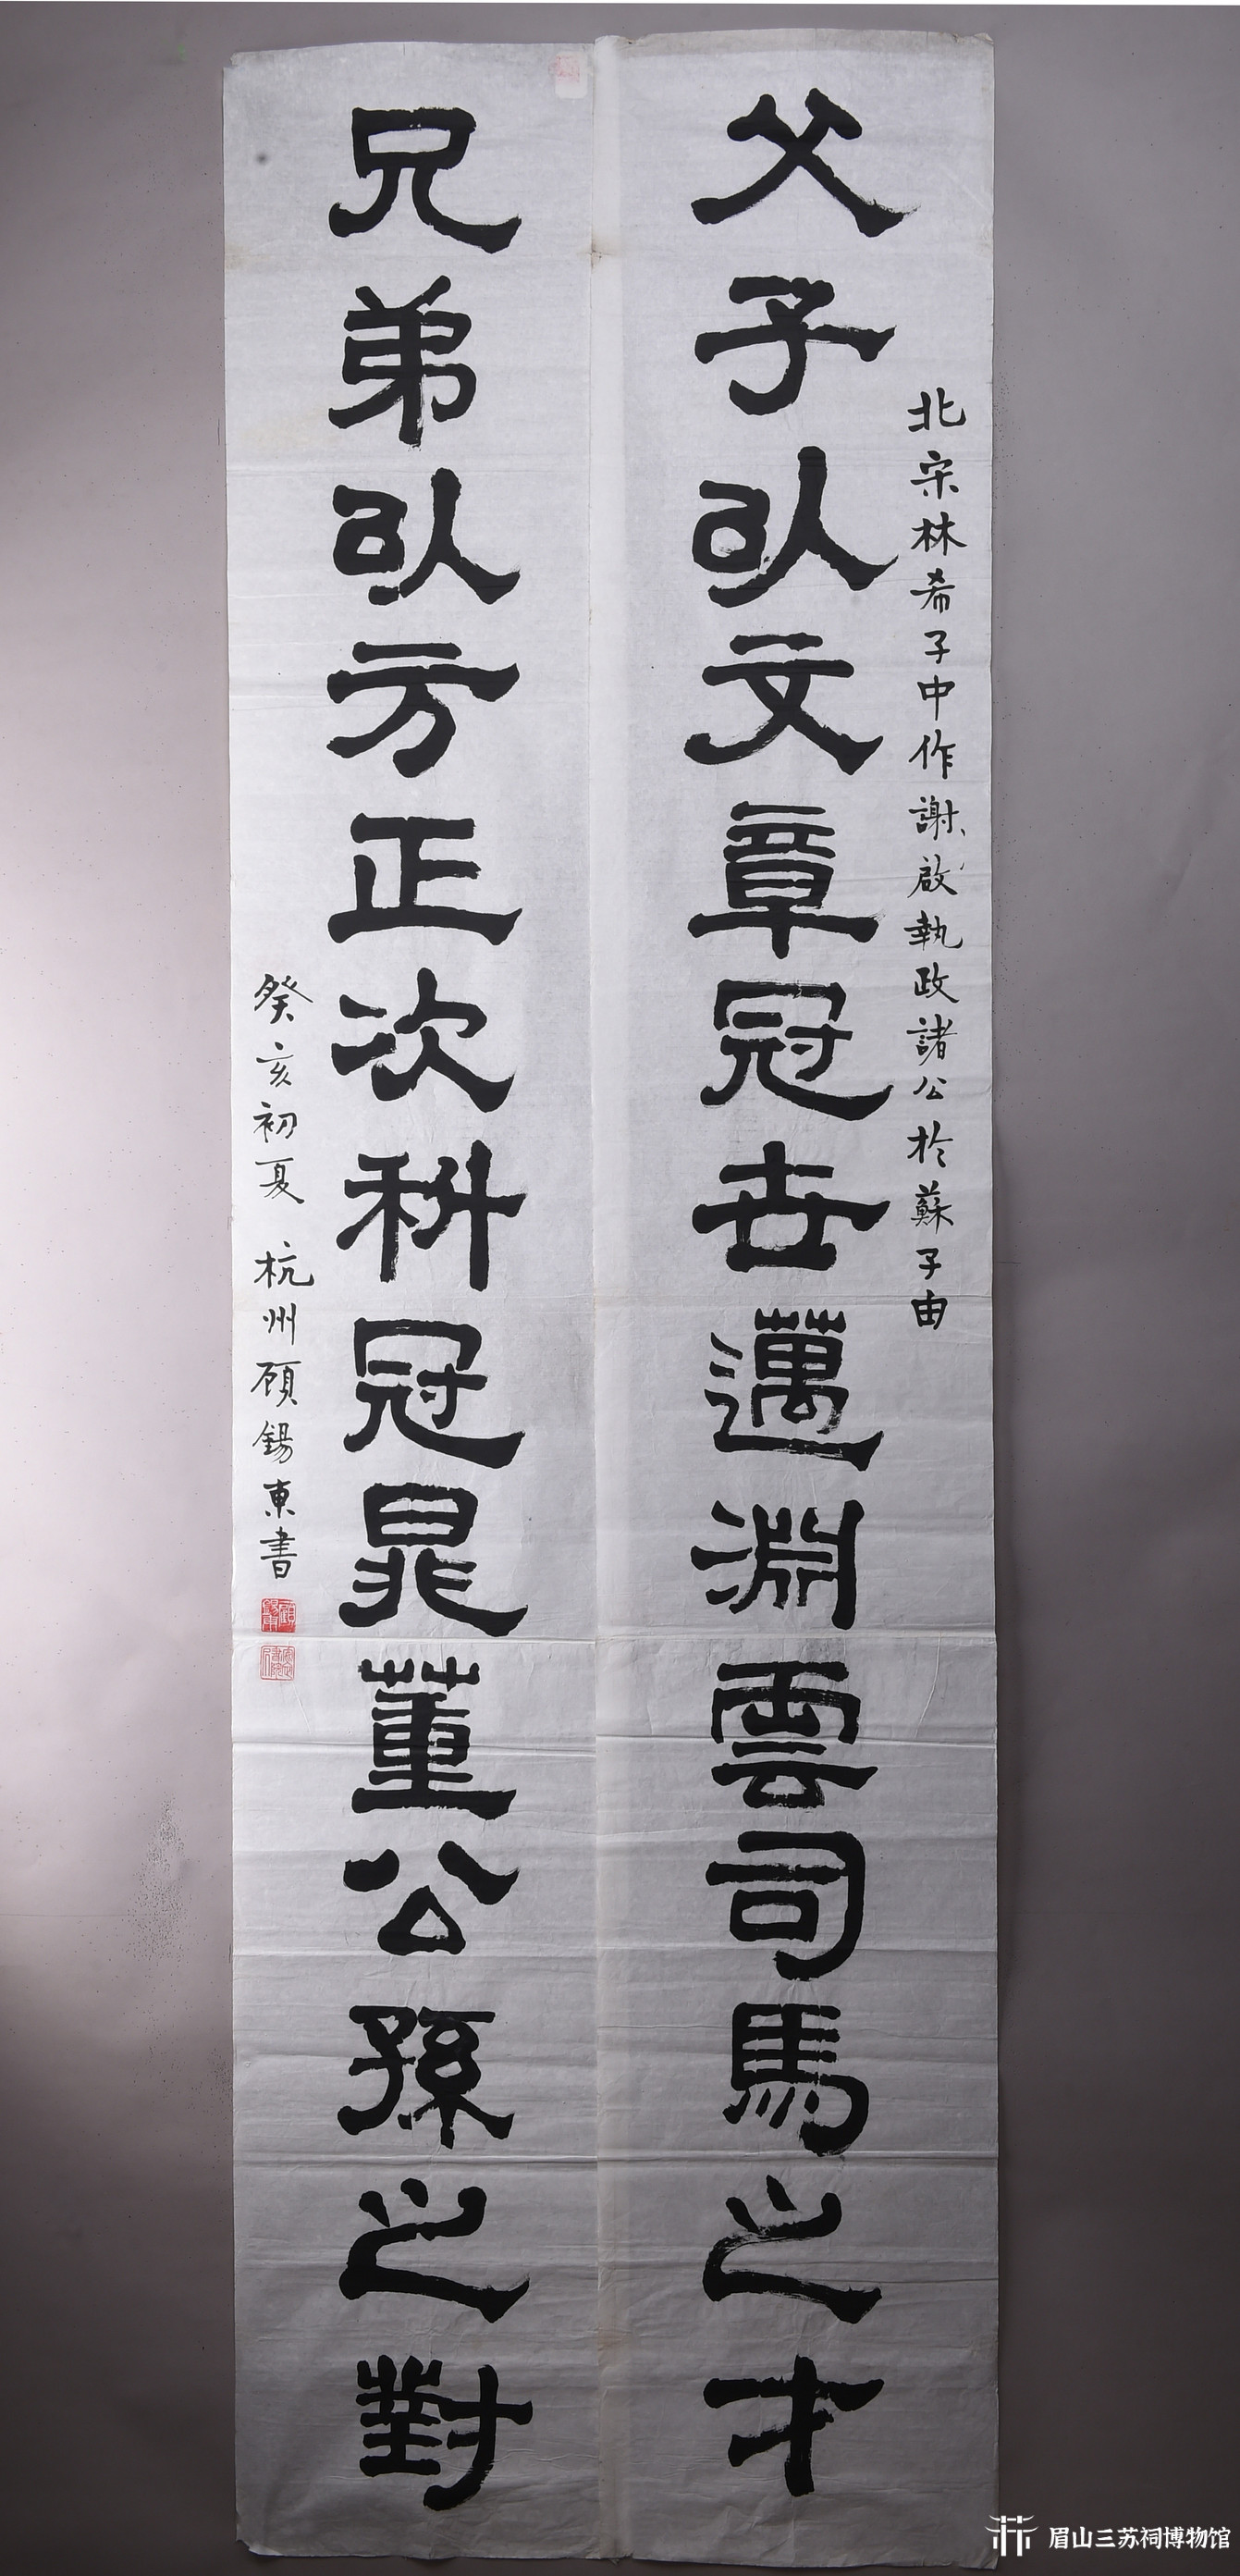 北宋林希子中作謝啟執政諸公於蘇子由
父子以文章冠世邁淵雲司馬之才
兄弟以方正次科冠晁董公孫之對
癸亥初夏 杭州顾錫東書
顧錫東
眉山三苏祠博物馆